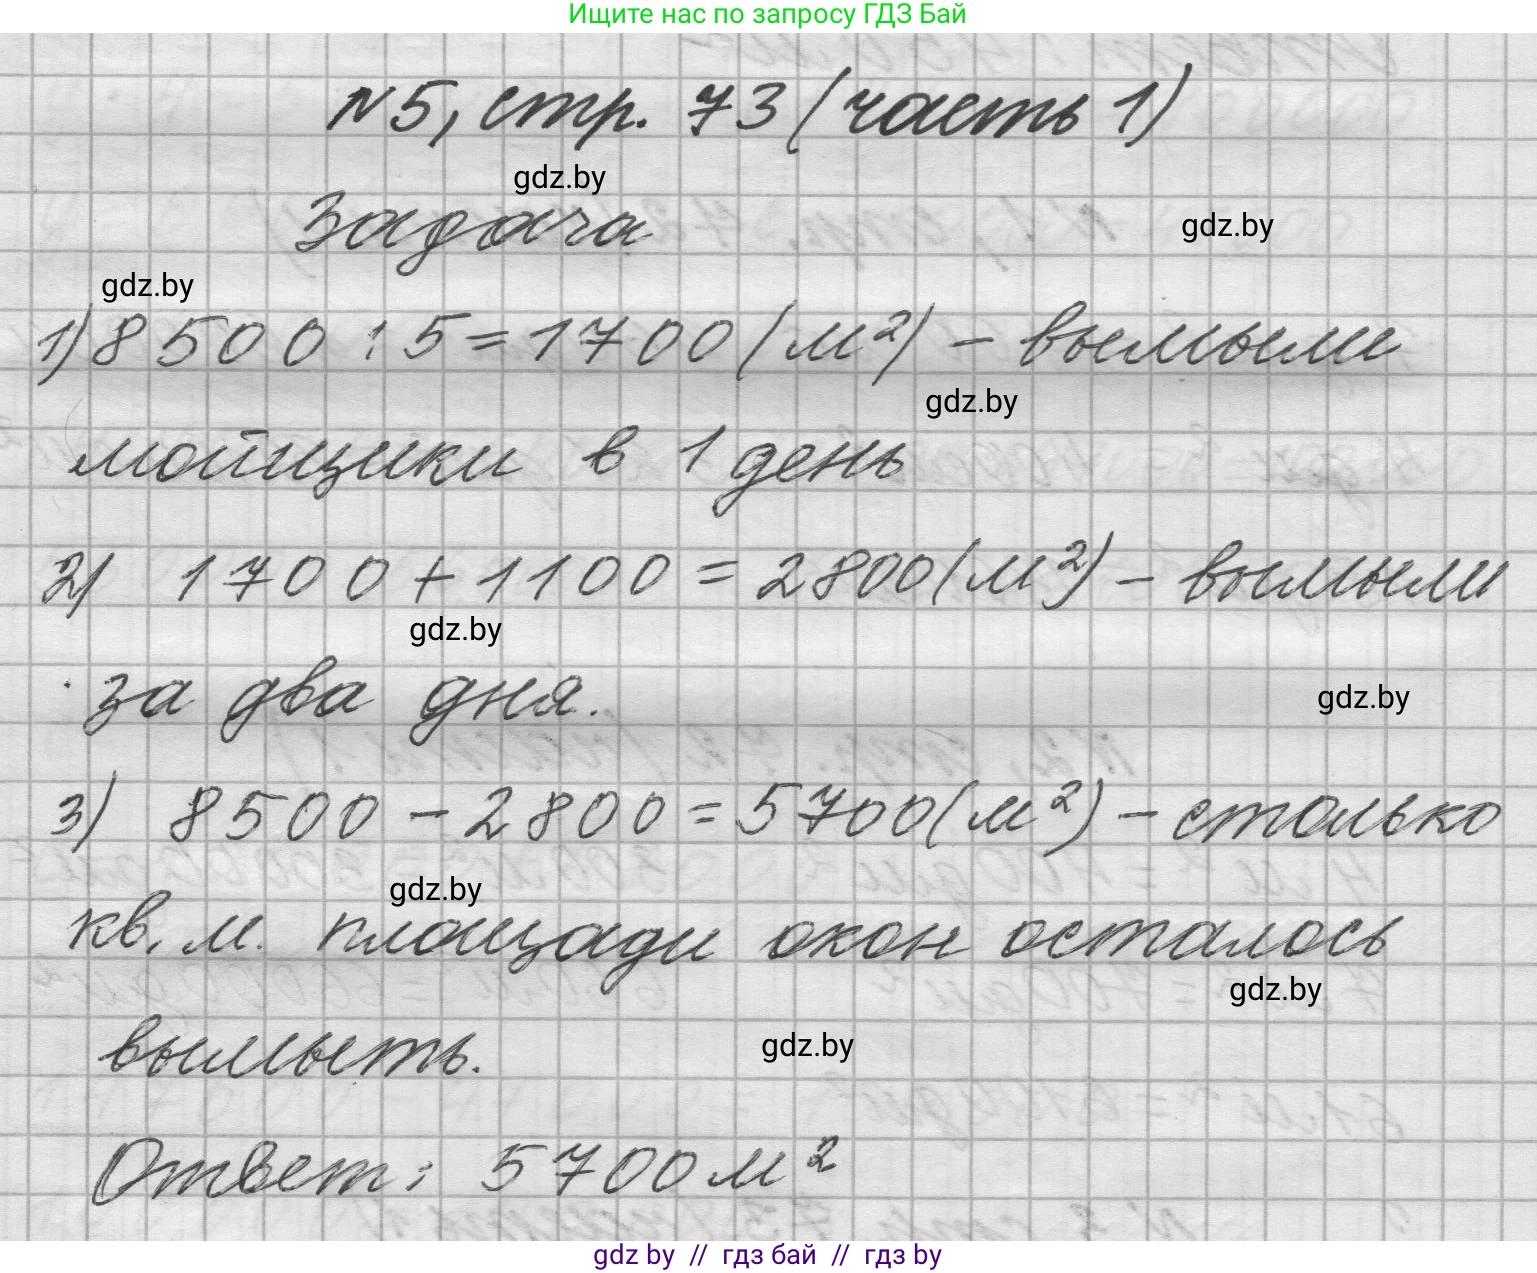 Ищите нас по запросу ГДЗ Бай
№5, стр. 73 (часть 1)
gdz.by
Задача
gdz.by
gdz.by
1) 8500 : 5 = 1700 (м²) - вымыли
gdz.by
мойщики в 1 день
2) 1700 + 1100 = 2800 (м²) - вымыли
gdz.by
за два дня.
gdz.by
3) 8500 - 2800 = 5700 (м²) - столько
gdz.by
кв. м. площади окон осталось
gdz.by
вымыть.
gdz.by
Ответ: 5700 м²
gdz by // гдз бай // гдз by